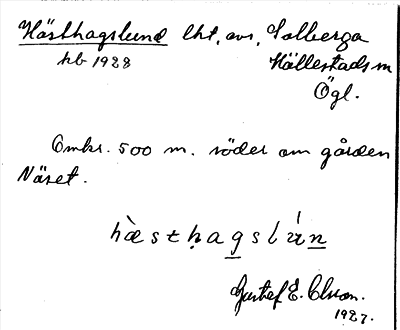 Hästhagslund lht, avs, Solberga
hb 1928 Hällestads sn
Ögl.
Omkr. 500 m. söder om gården
Näset.
Gustaf E. Olsson.
1927.